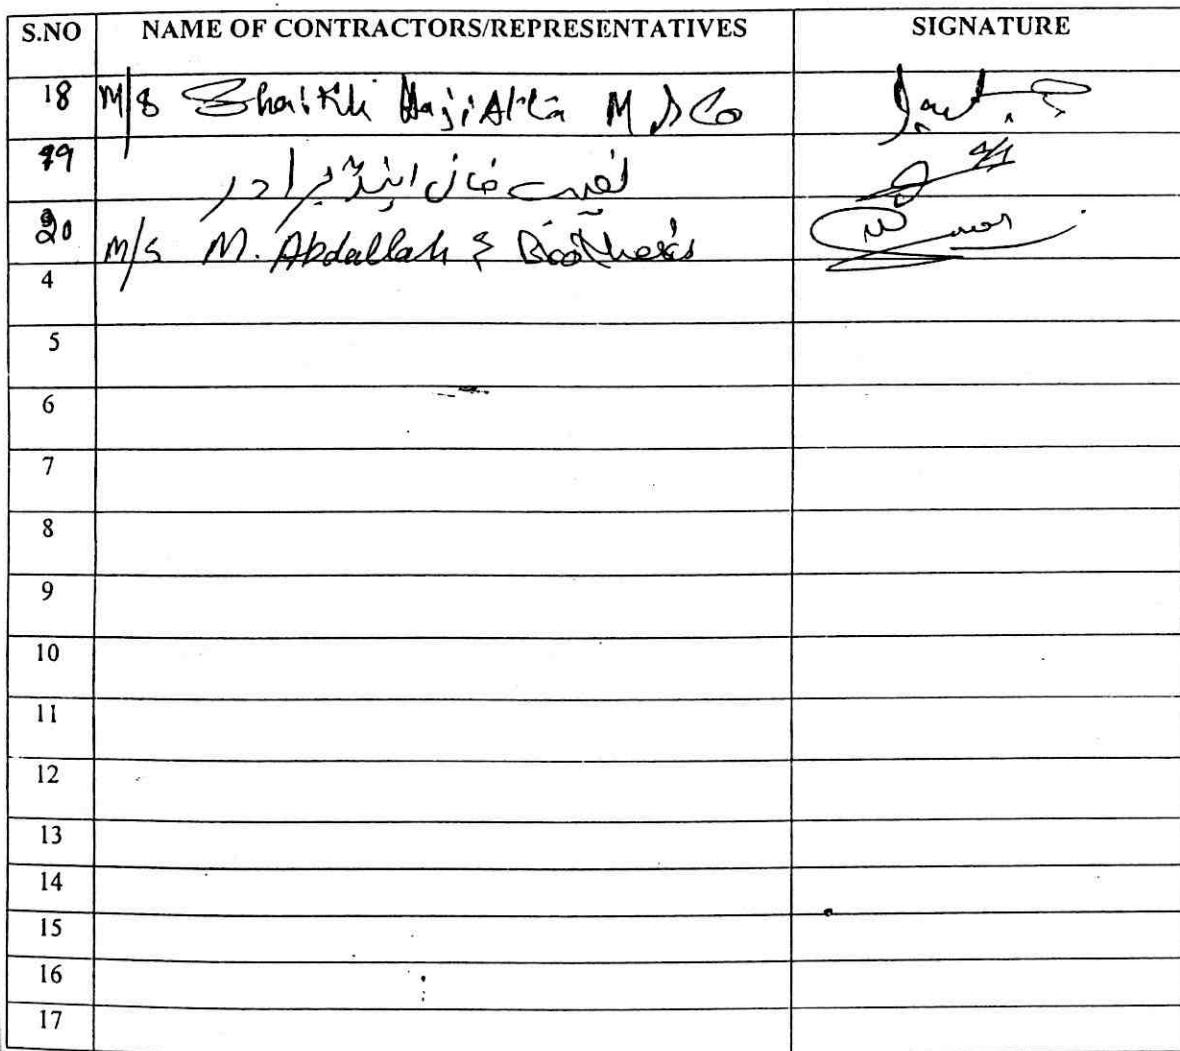 S.NO NAME OF CONTRACTORS/REPRESENTATIVES SIGNATURE
18 M/S Shaikh Haji M & Co
19 نصیب خان اینڈ برادر
20 M/S M. Abdullah & Brothers
4
5
6
7
8
9
10
11
12
13
14
15
16
17